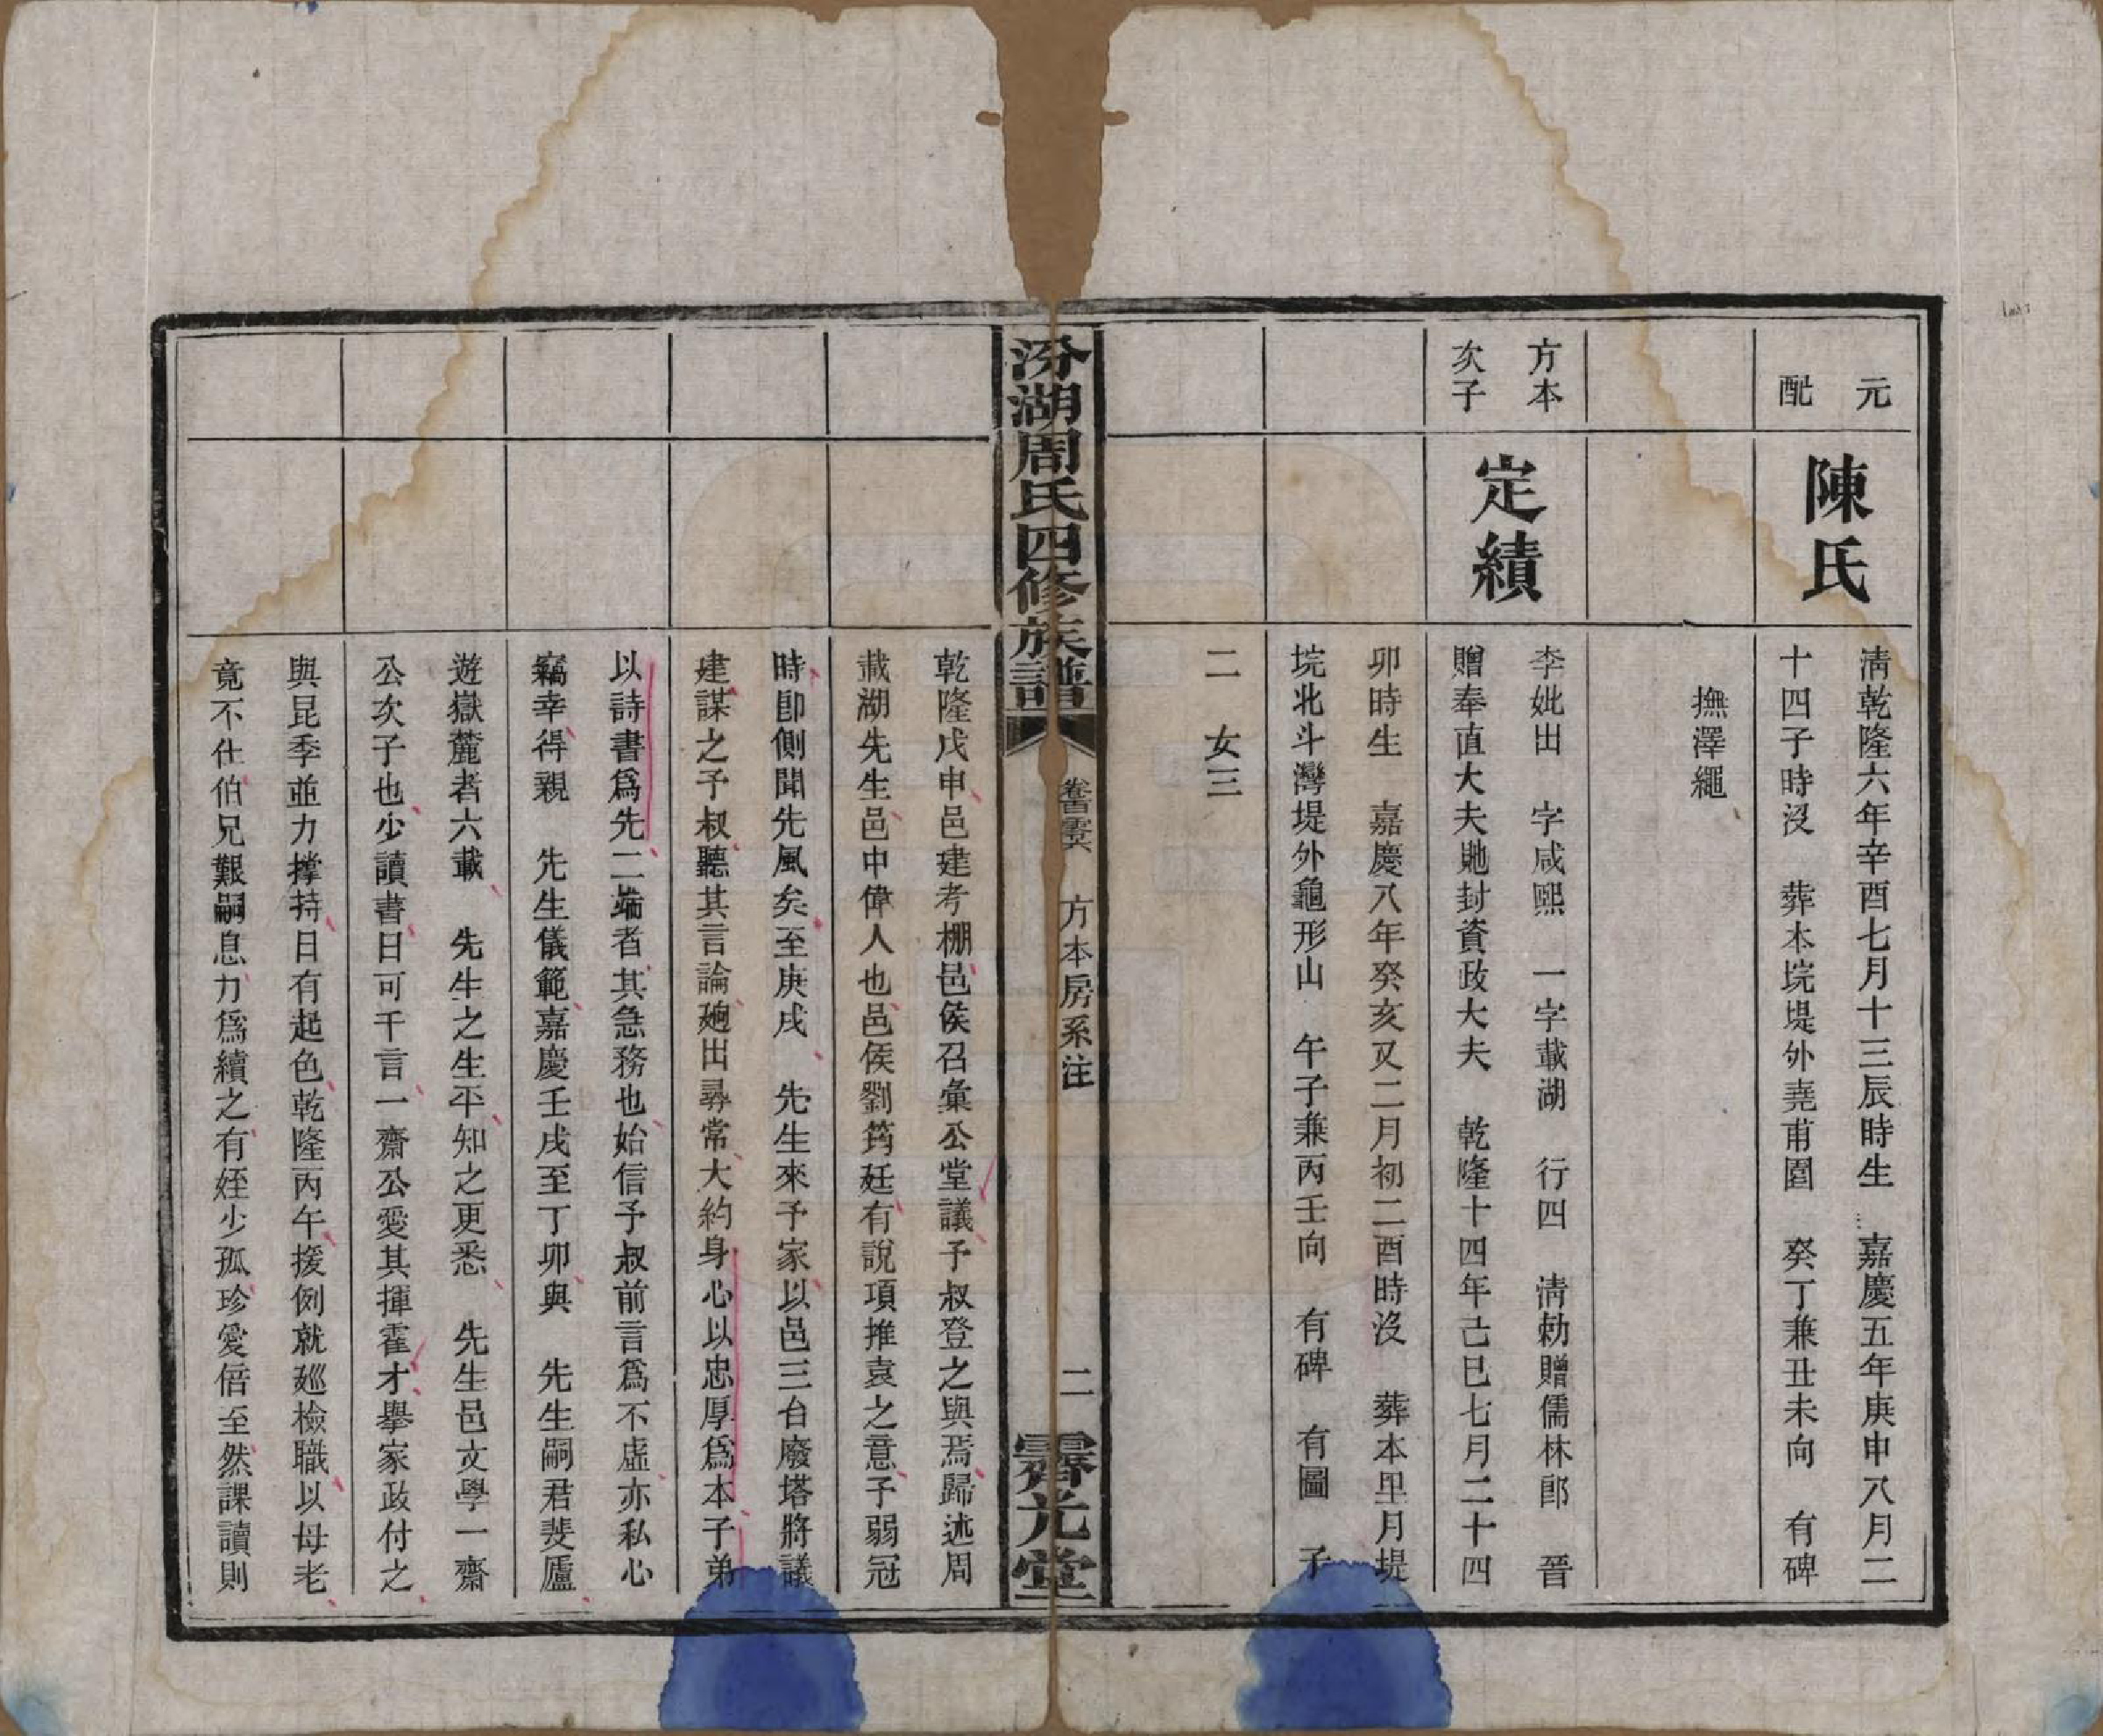 元
配
陳氏
淸乾隆六年辛酉七月十三辰時生 嘉慶五年庚申八月二
十四子時沒 葬本垸堤外堯甫圍 癸丁兼丑未向 有碑
撫澤繩
方本
次子
定績
李妣出 字咸熙 一字載湖 行四 淸勅贈儒林郎 晉
贈奉直大夫貤封資政大夫 乾隆十四年己巳七月二十四
卯時生 嘉慶八年癸亥又二月初二酉時沒 葬本里月堤
垸北斗灣堤外龜形山 午子兼丙壬向 有碑 有圖 子
二 女三
汾湖周氏四修族譜
方本房系注
二
霽光堂
乾隆戊申邑建考棚邑侯召彙公堂議予叔登之與焉歸述周
載湖先生邑中偉人也邑侯劉筠廷有說項推袁之意予弱冠
時卽側聞先風矣至庚戌 先生來予家以邑三台廢塔將議
建謀之予叔聽其言論逈出尋常大約身心以忠厚爲本子弟
以詩書爲先二端者其急務也始信予叔前言爲不虛亦私心
竊幸得親 先生儀範嘉慶壬戌至丁卯與 先生嗣君斐廬
遊嶽麓者六載 先生之生平知之更悉 先生邑文學一齋
公次子也少讀書日可千言一齋公愛其揮霍才舉家政付之
與昆季並力撐持日有起色乾隆丙午援例就廵檢職以母老
竟不仕伯兄艱嗣息力爲續之有姪少孤珍愛倍至然課讀則